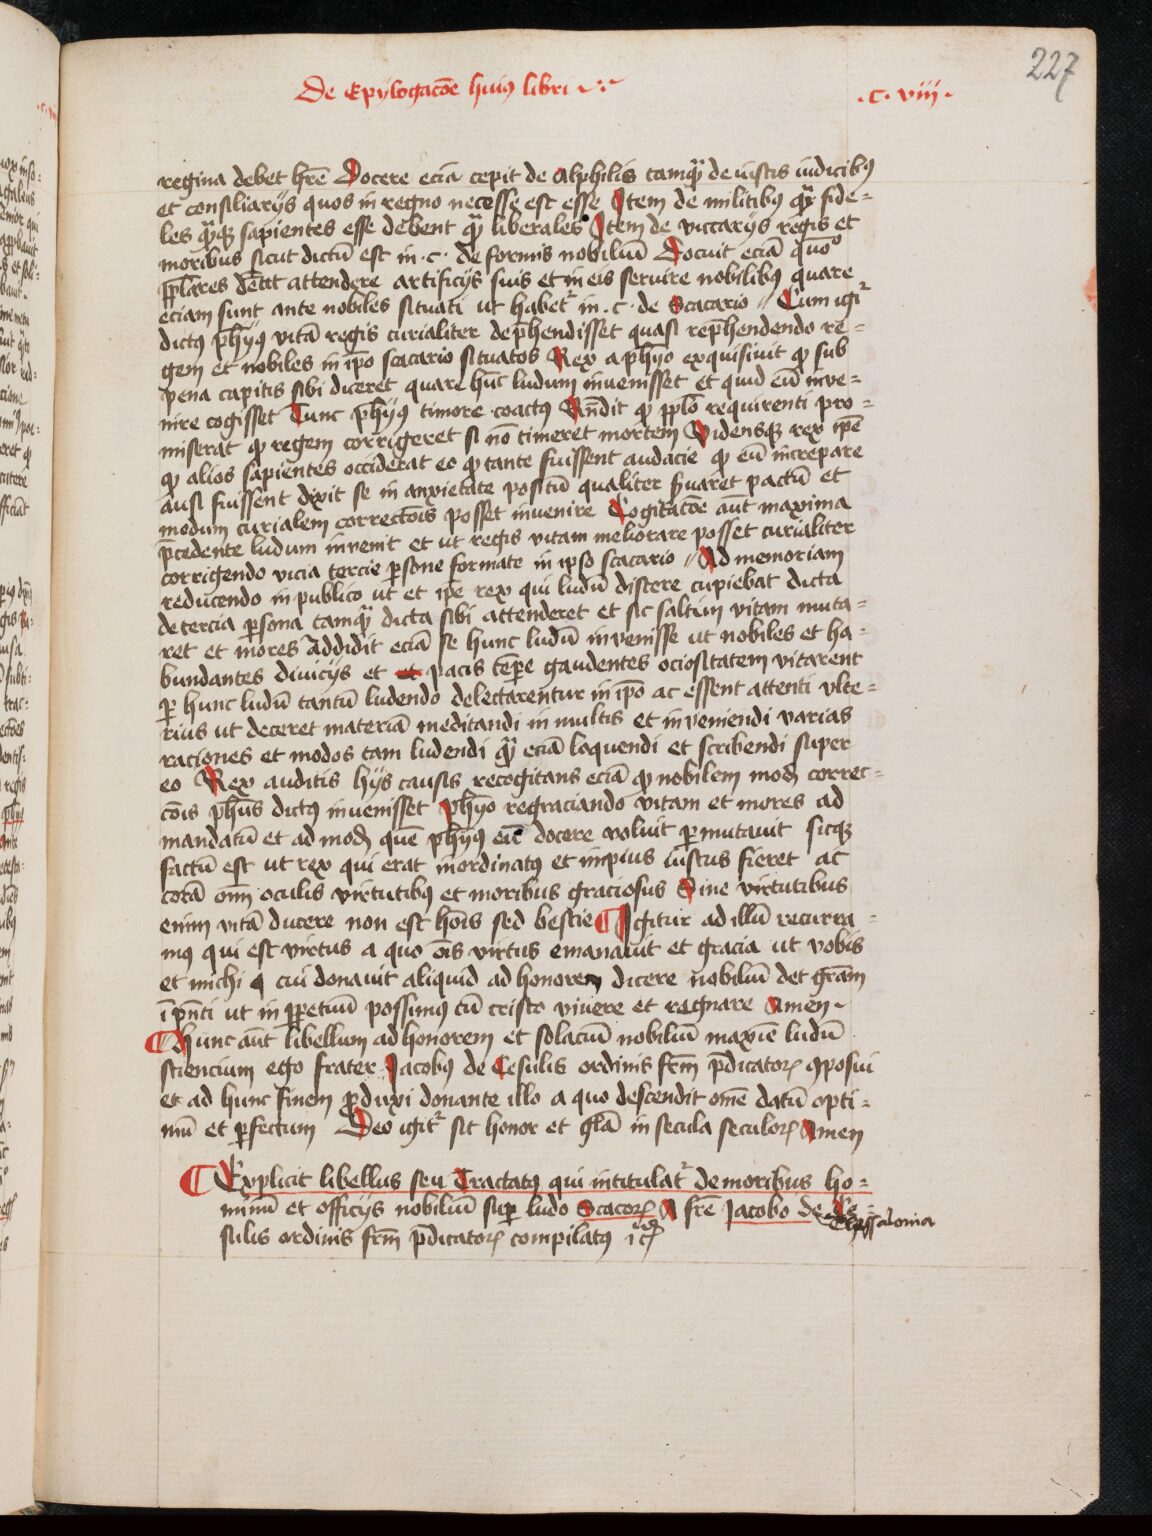 227
De Epylogacōe huiꝰ libri
.c. viii.
regina debet hr̄e Docere eciā cepit de Alphilis tamqͣ de iustis iudicibꝰ
et consiliarijs quos in regno necesse est esse Item de militibꝰ qͣ fide=
les qͣqꝫ sapientes esse debent qͣ liberales Item de viccarijs regis et
moribus sicut dictū est in .c. de formis nobiliū Docuit eciā quōº
pplares attendere artificijs suis et in eis seruire nobilibꝰ quare
eciam sunt ante nobiles situati ut habetͬ in .c. de Scacario // Cum igiͬ
dictꝰ ph̄ꝰ vitā regis curialiter dep̄hendisset quasi rep̄hendendo re=
gem et nobiles in ip̄o scacario situatos Rex a ph̄o exquisiuit qꝫ sub
pena capitis sibi diceret quare hūc ludum inuenisset et quid eū inue=
nire cogisset Tunc ph̄ꝰ timore coactꝰ Rn̄dit qꝫ pplō requirenti pro=
miserat qꝫ regem corrigeret si nō timeret mortem Vidensqꝫ rex ip̄e
qꝫ alios sapientes occiderat eo qꝫ tante fuissent audacie qꝫ eū increpare
ausi fuissent dixit se in anxietate positū qualiter s̄uaret pactū et
modum curialem correctōis posset inuenire Cogitacōe aūt maxima
p̄cedente ludum inuenit et ut regis vitam meliorare posset curialiter
corrigendo vicia tercie ꝑsone formate in ipso scacario // Ad memoriam
reducendo in publico ut et ip̄e rex qui ludū discere cupiebat dicta
de tercia ꝑsona tamqͣ dicta sibi attenderet et sic saltim vitam muta=
ret et mores Addidit eciā se hunc ludū inuenisse ut nobiles et ha=
bundantes diuicijs et pacis tēꝑe gaudentes ociositatem vitarent
ꝑ hunc ludū tantū ludendo delectarentur in ip̄o ac essent attenti vlte=
rius ut deceret materiā meditandi in multis et inueniendi varias
raciones et modos tam ludendi qͣ eciā loquendi et scribendi super
eo Rex auditis hijs causis recogitans eciā qꝫ nobilem modꝫ correc=
cōis ph̄us dictꝰ inuenisset ph̄o regraciando vitam et mores ad
mandatū et ad modꝫ quē ph̄ꝰ eū docere voluit ꝑmutauit sicqꝫ
factū est ut rex qui erat inordinatꝰ et impius iustus fieret ac
corā om̄ oculis virtutibꝰ et moribus graciosus Sine virtutibus
enim vitā ducere non est hōis sed bestie ¶ Igitur ad illū recurra=
mꝰ qui est virtus a quo ōis virtus emanauit et gracia ut vobis
et michi cui donauit aliquid ad honorem dicere nobiliū det grām
ī pn̄ti ut in ꝑpetuū possimꝰ cū cristo viuere et regnare Amen
¶ Hunc aūt libellum ad honorem et solaciū nobiliū maxīe ludū
sciencium ego frater Jacobꝰ de Cesulis ordinis frm̄ p̄dicatorꝝ ꝯposui
et ad hunc finem ꝓduxi donante illo a quo descendit om̄e datū opti=
mū et ꝑfectum Deo igitͬ sit honor et glā in secula seculorꝝ Amen
¶ Explicit libellus seu Tractatꝰ qui intitulatͬ de moribus ho=
minū et officijs nobiliū suꝑ ludo Scacorꝝ A fr̄e Jacobo de Ce=
Thessalonia
sulis ordinis frm̄ p̄dicatorꝝ compilatꝰ